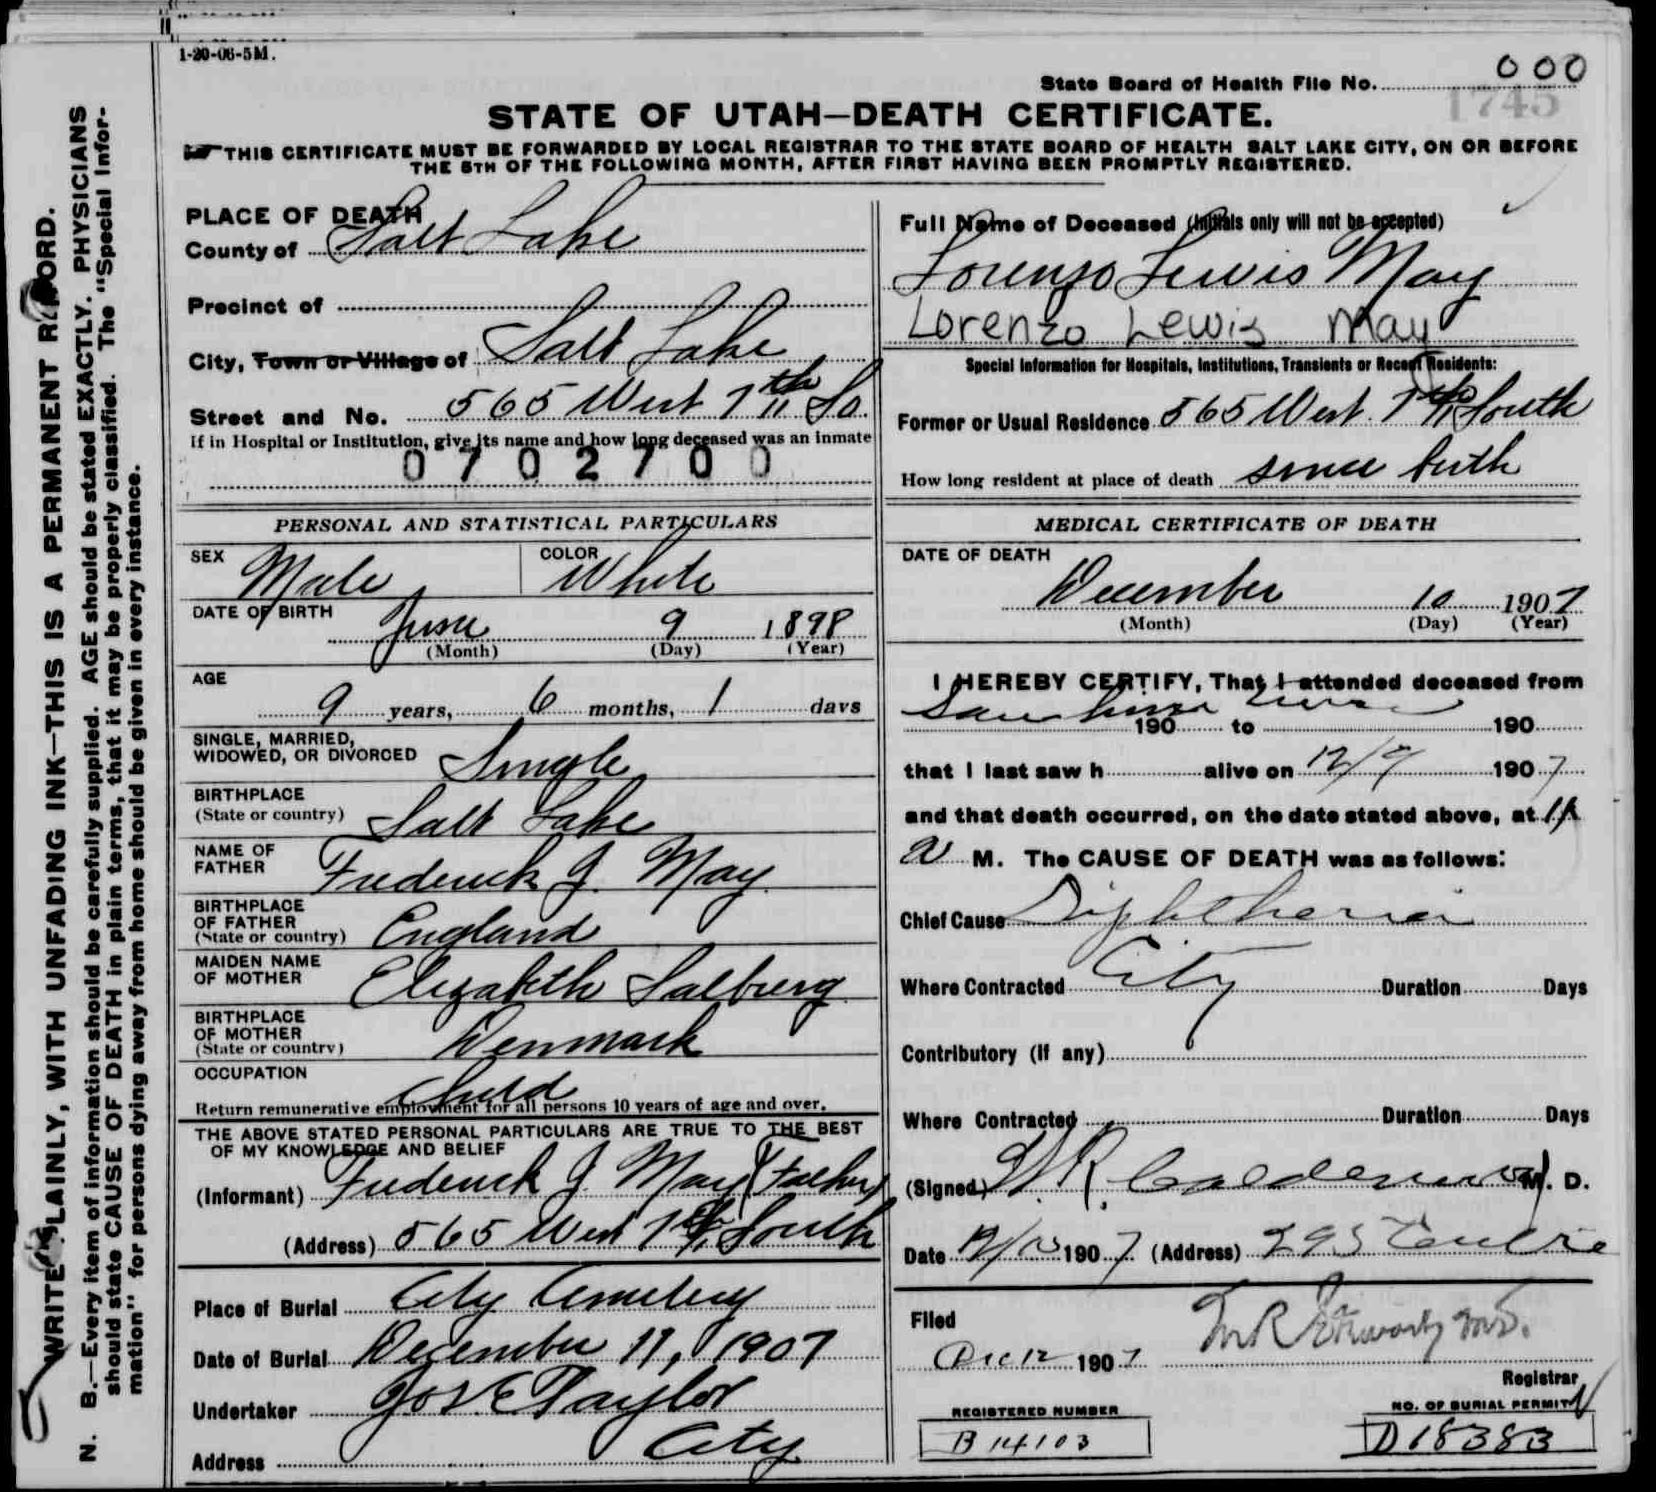 1-20-06-5M.
State Board of Health File No. 000
1745
STATE OF UTAH—DEATH CERTIFICATE.
THIS CERTIFICATE MUST BE FORWARDED BY LOCAL REGISTRAR TO THE STATE BOARD OF HEALTH SALT LAKE CITY, ON OR BEFORE
THE 5TH OF THE FOLLOWING MONTH, AFTER FIRST HAVING BEEN PROMPTLY REGISTERED.
WRITE PLAINLY, WITH UNFADING INK—THIS IS A PERMANENT RECORD.
N. B.—Every item of information should be carefully supplied. AGE should be stated EXACTLY. PHYSICIANS
should state CAUSE OF DEATH in plain terms, that it may be properly classified. The "Special Infor-
mation" for persons dying away from home should be given in every instance.
PLACE OF DEATH
County of Salt Lake
Precinct of
City, Town or Village of Salt Lake
Street and No. 565 West 7th So.
If in Hospital or Institution, give its name and how long deceased was an inmate
0702700
Full Name of Deceased (Initials only will not be accepted)
Lorenzo Lewis May
Lorenzo Lewis May
Special Information for Hospitals, Institutions, Transients or Recent Residents:
Former or Usual Residence 565 West. 7th South
How long resident at place of death since birth
PERSONAL AND STATISTICAL PARTICULARS
SEX Male
COLOR White
DATE OF BIRTH
June 9 1898
(Month) (Day) (Year)
AGE
9 years, 6 months, 1 days
SINGLE, MARRIED,
WIDOWED, OR DIVORCED Single
BIRTHPLACE
(State or country) Salt Lake
NAME OF
FATHER Frederick J. May
BIRTHPLACE
OF FATHER
(State or country) England
MAIDEN NAME
OF MOTHER Elizabeth Salberg
BIRTHPLACE
OF MOTHER
(State or country) Denmark
OCCUPATION Child
Return remunerative employment for all persons 10 years of age and over.
THE ABOVE STATED PERSONAL PARTICULARS ARE TRUE TO THE BEST
OF MY KNOWLEDGE AND BELIEF
(Informant) Frederick J May (Father)
(Address) 565 West 7th South
Place of Burial City Cemetery
Date of Burial December 11, 1907
Undertaker Jos E Taylor
Address City
MEDICAL CERTIFICATE OF DEATH
DATE OF DEATH
December 10 1907
(Month) (Day) (Year)
I HEREBY CERTIFY, That I attended deceased from
Saw him
190 to 190
that I last saw h alive on 12/9 1907
and that death occurred, on the date stated above, at
a M. The CAUSE OF DEATH was as follows:
Chief Cause Diphtheria
Where Contracted City Duration Days
Contributory (if any)
Where Contracted Duration Days
(Signed) Calderwood M. D.
Date 1907 (Address)
Filed
Dec 12 1907
Registrar
REGISTERED NUMBER
B 14103
NO. OF BURIAL PERMIT
D18383